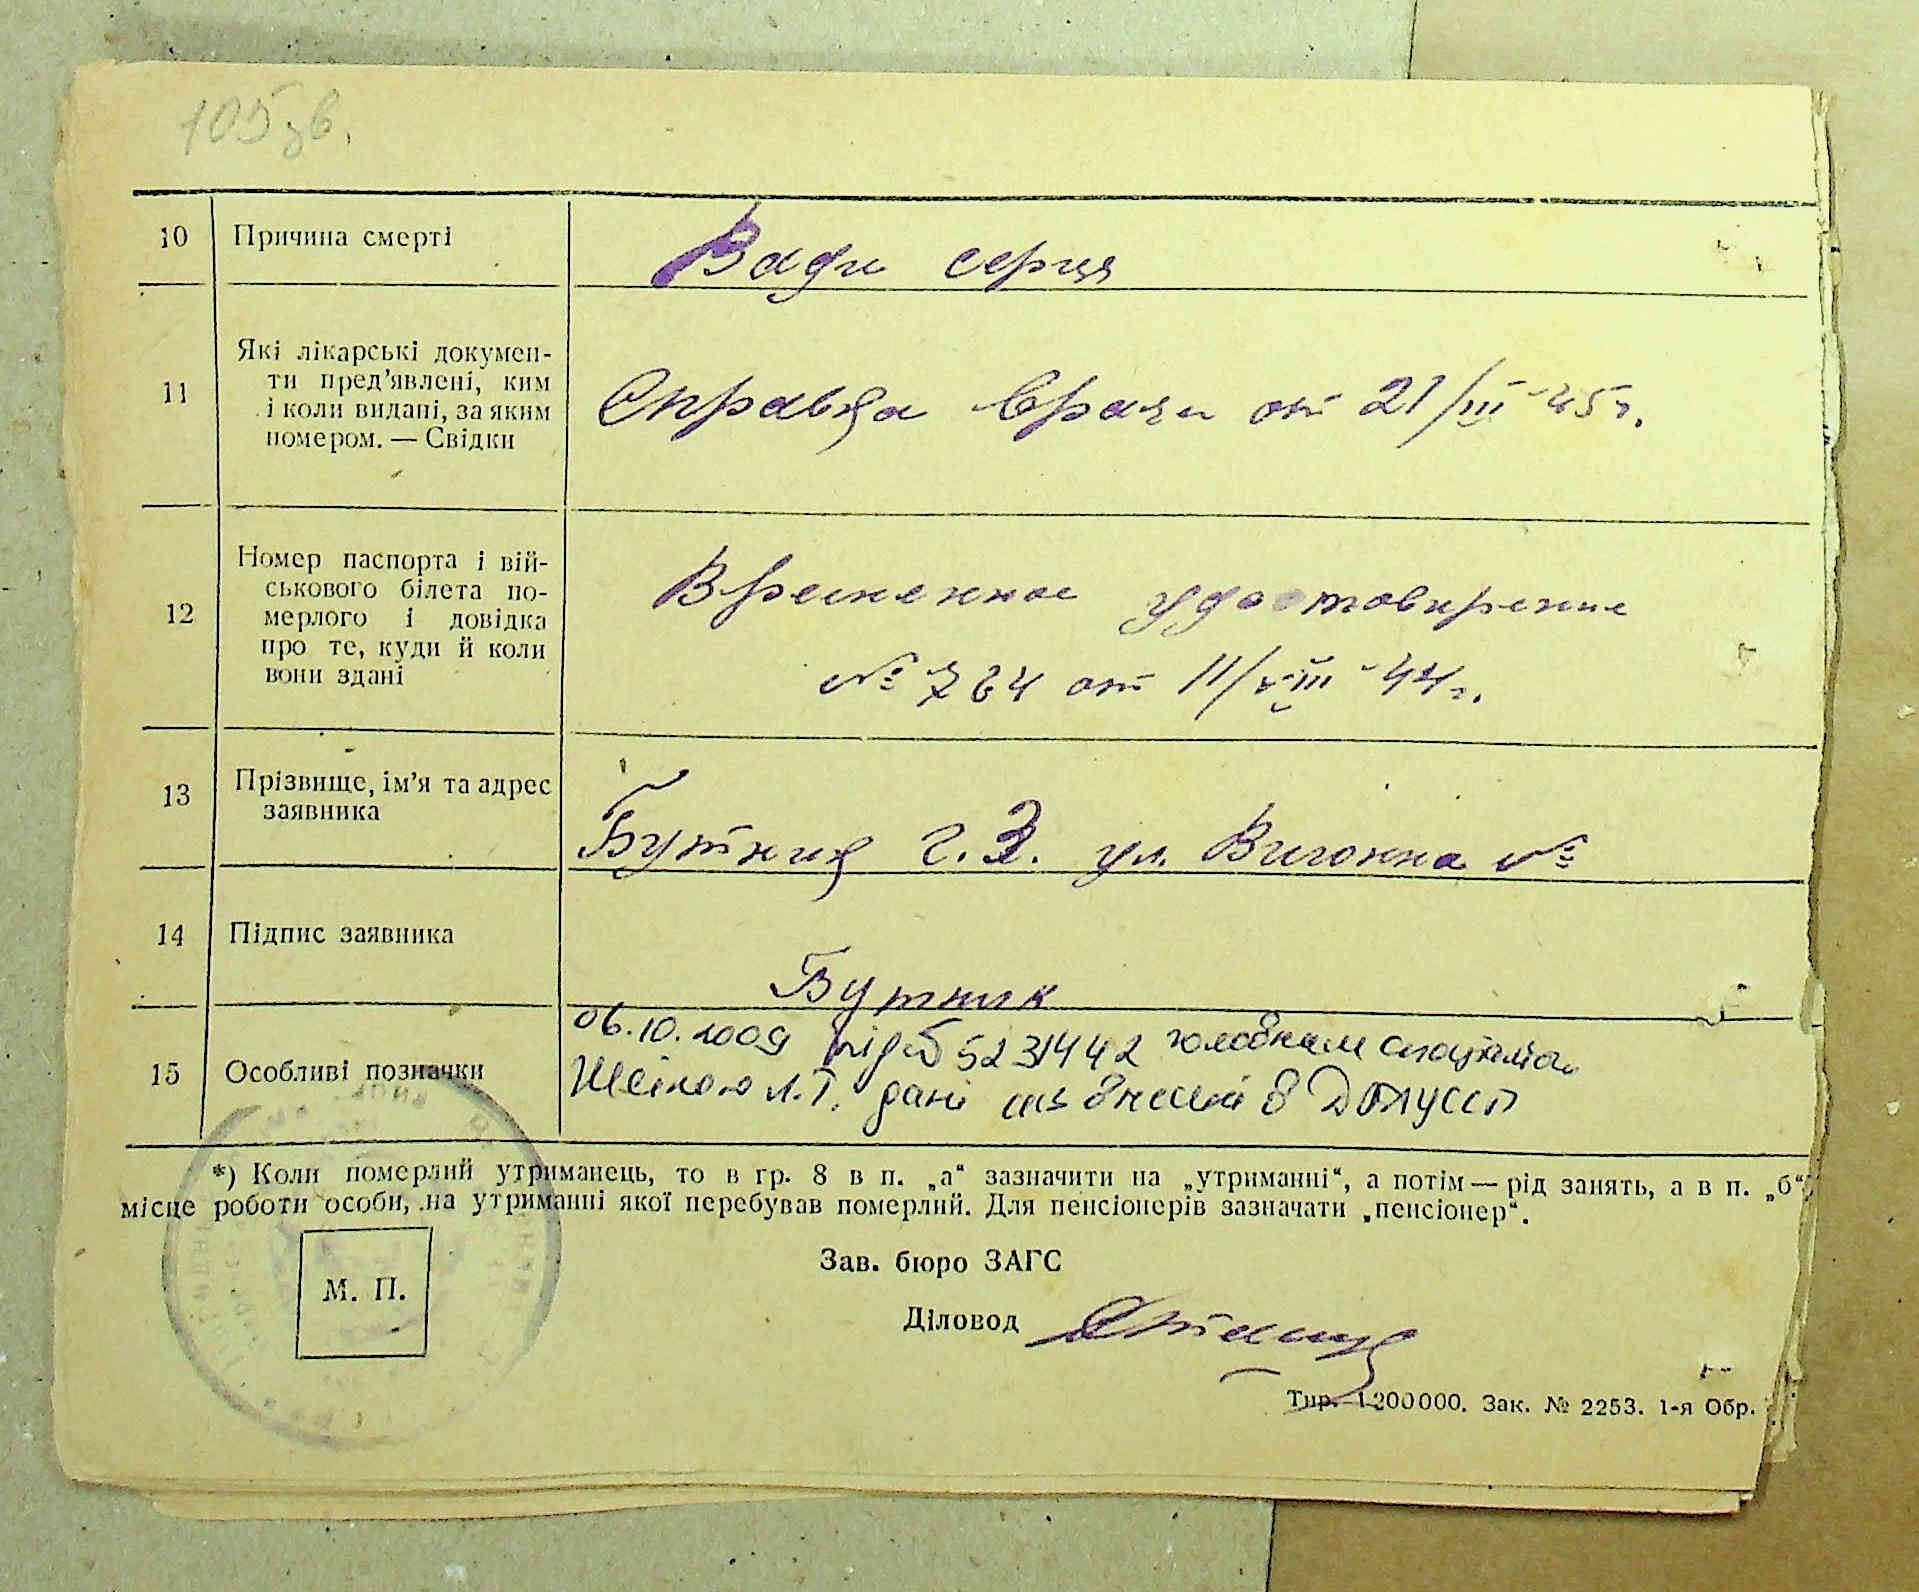 105зв.
10 Причина смерті Вади серця
11 Які лікарські докумен-
ти пред'явлені, ким
і коли видані, за яким
номером. — Свідки
Справка врача от 21/III-45г.
12 Номер паспорта і вій-
ськового білета по-
мерлого і довідка
про те, куди й коли
вони здані
Временное удостовирение
№ 764 от 11/VIII-44г.
13 Прізвище, ім'я та адрес
заявника
Бутник г. З. ул. Вигонна №
14 Підпис заявника
Бутник
15 Особливі позначки
06.10.2009 5231442 головним
Л.Т. дані внесені в
*) Коли померлий утриманець, то в гр. 8 в п. „а“ зазначити на „утриманні“, а потім — рід занять, а в п. „б“
місце роботи особи, на утриманні якої перебував померлий. Для пенсіонерів зазначати „пенсіонер“.
М. П.
Зав. бюро ЗАГС
Діловод
Тир. 1200000. Зак. № 2253. 1-я Обр.